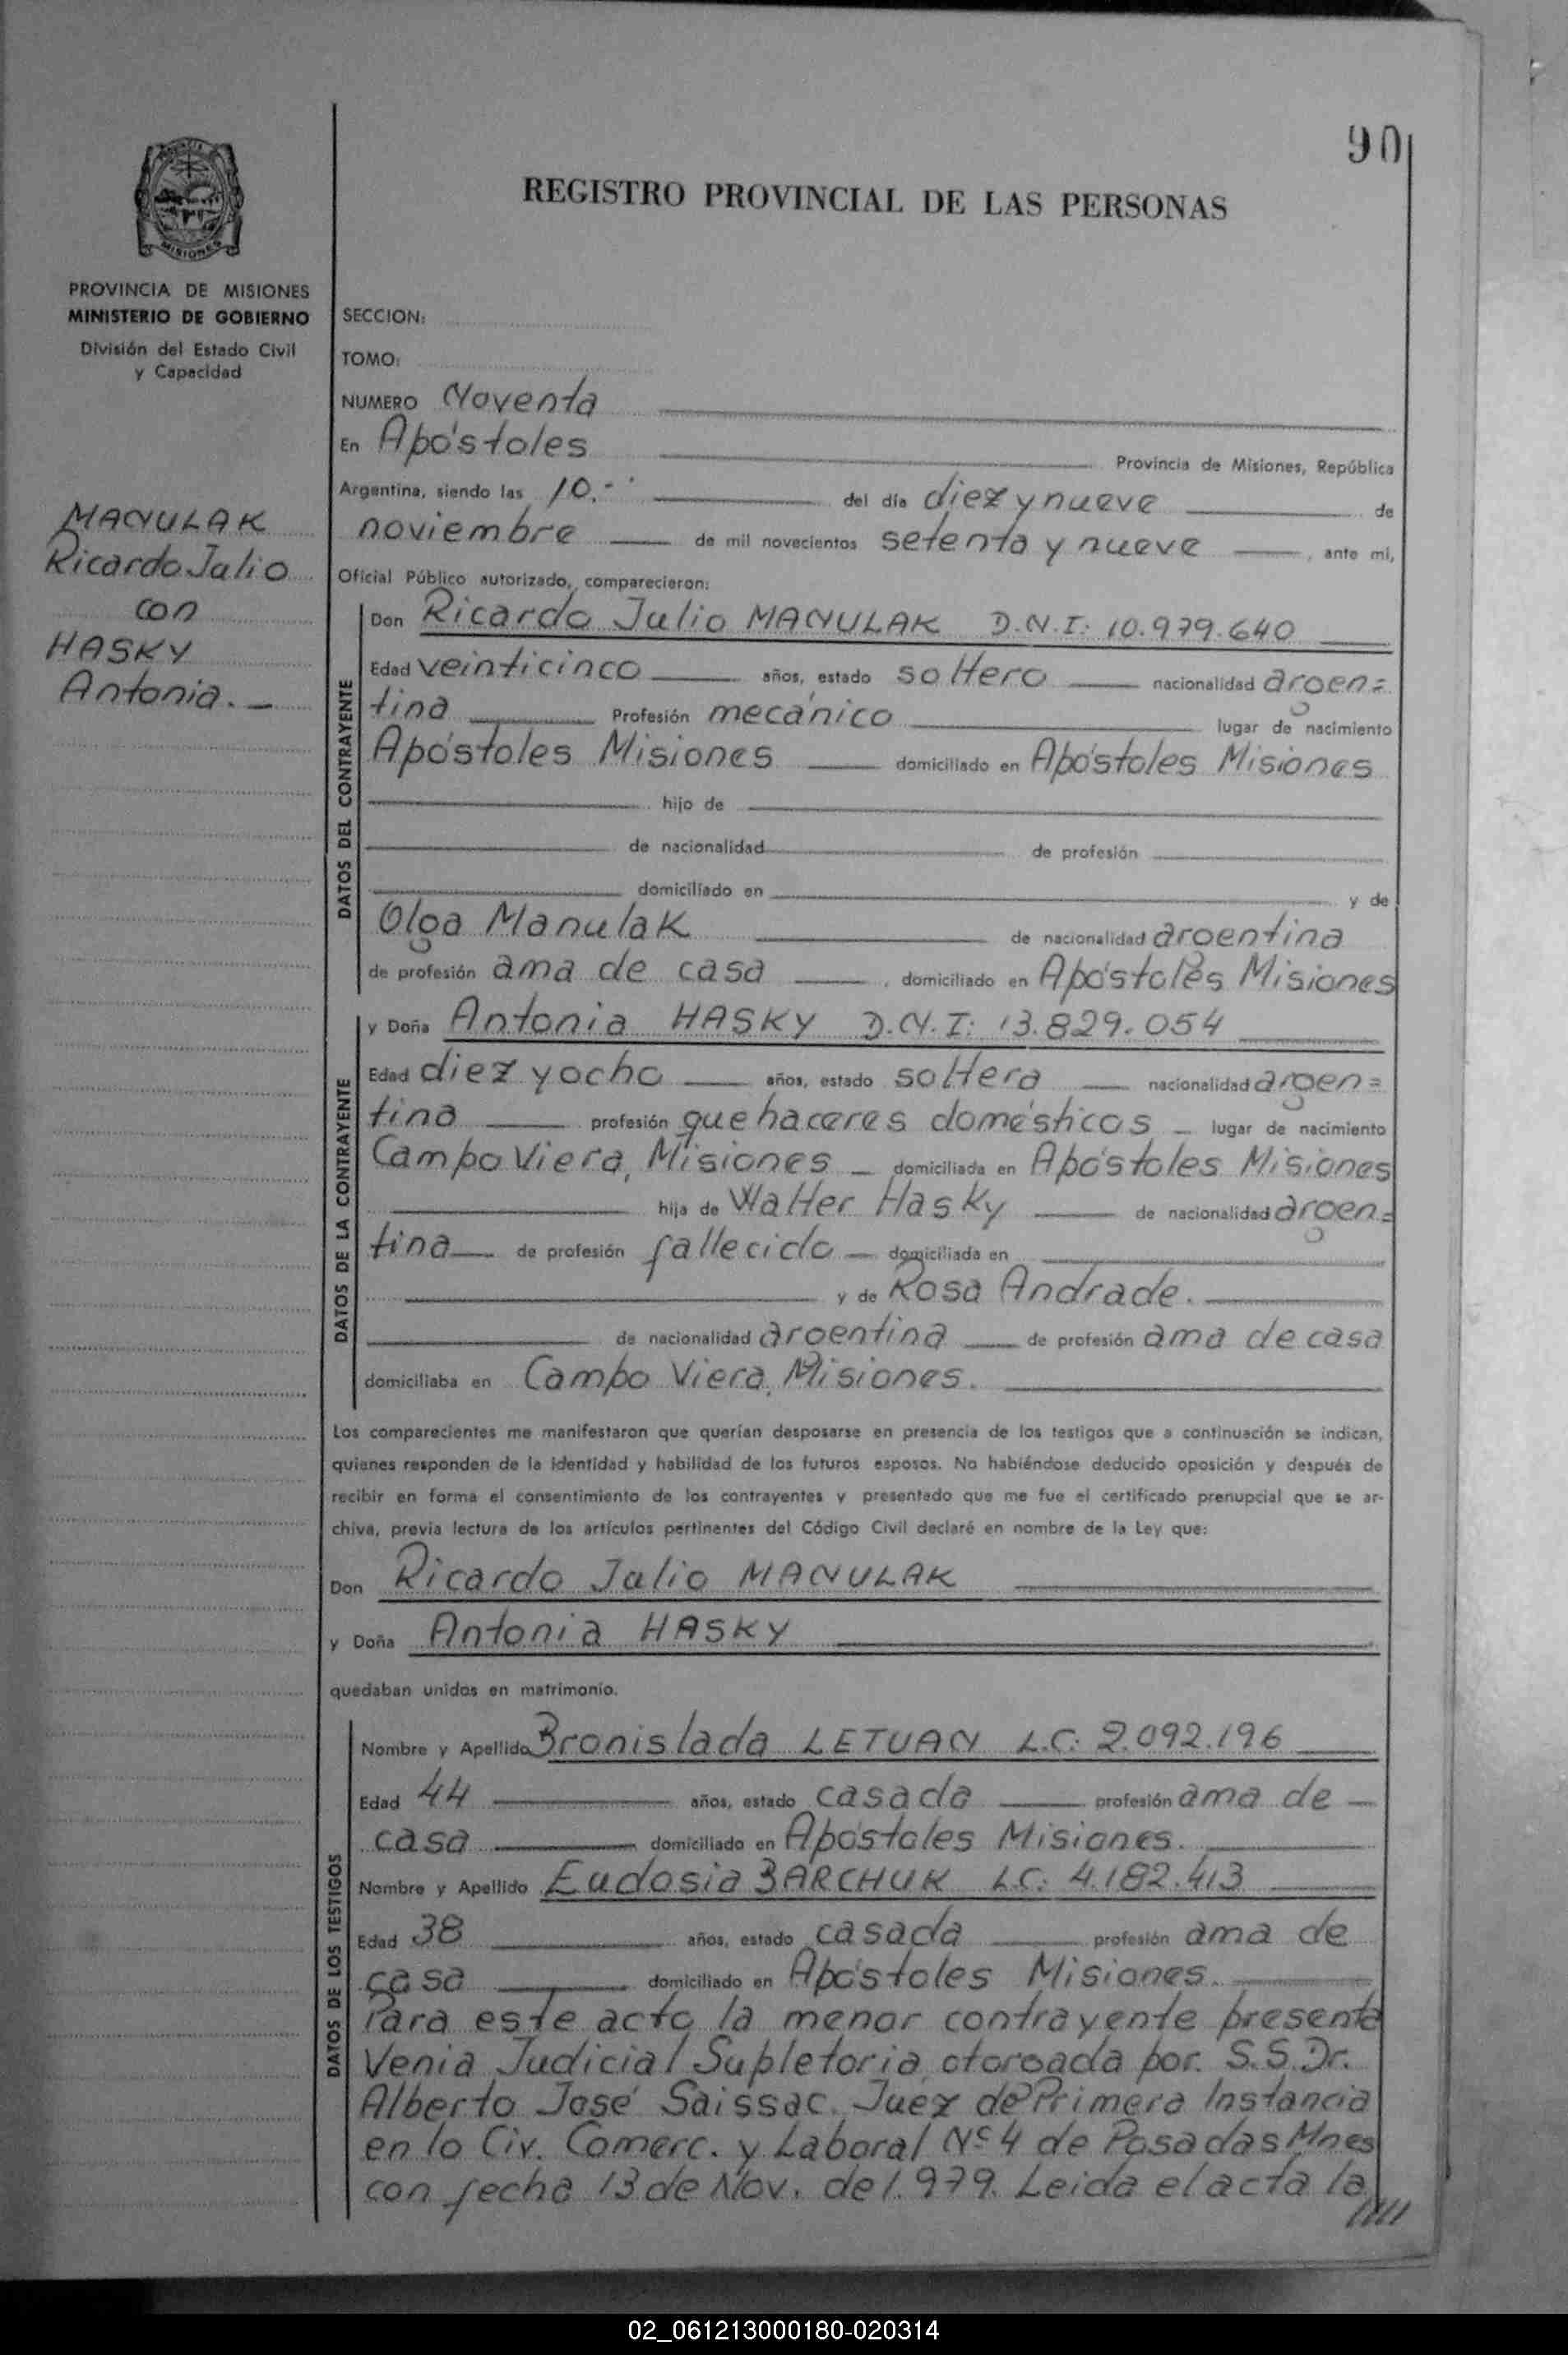 90
REGISTRO PROVINCIAL DE LAS PERSONAS
MISIONES
PROVINCIA DE MISIONES
MINISTERIO DE GOBIERNO
División del Estado Civil
y Capacidad
MANULAK
Ricardo Julio
con
HASKY
Antonia.-
SECCION:
TOMO:
NUMERO Noventa
En Apóstoles Provincia de Misiones, República
Argentina, siendo las 10.- del día diez y nueve de
noviembre de mil novecientos setenta y nueve, ante mí,
Oficial Público autorizado, comparecieron:
DATOS DEL CONTRAYENTE
Don Ricardo Julio MANULAK D.N.I: 10.979.640
Edad veinticinco años, estado soltero nacionalidad argen=
tina Profesión mecánico lugar de nacimiento
Apóstoles Misiones domiciliado en Apóstoles Misiones
hijo de
de nacionalidad de profesión
domiciliado en y de
Olga Manulak de nacionalidad argentina
de profesión ama de casa, domiciliado en Apóstoles Misiones
DATOS DE LA CONTRAYENTE
y Doña Antonia HASKY D.N.I: 13.829.054
Edad diez y ocho años, estado soltera nacionalidad argen=
tina profesión quehaceres domésticos - lugar de nacimiento
Campo Viera, Misiones - domiciliada en Apóstoles Misiones
hija de Walter Hasky de nacionalidad argen=
tina de profesión fallecido domiciliada en
y de Rosa Andrade.
de nacionalidad argentina de profesión ama de casa
domiciliaba en Campo Viera, Misiones.
Los comparecientes me manifestaron que querían desposarse en presencia de los testigos que a continuación se indican,
quienes responden de la identidad y habilidad de los futuros esposos. No habiéndose deducido oposición y después de
recibir en forma el consentimiento de los contrayentes y presentado que me fue el certificado prenupcial que se ar-
chiva, previa lectura de los artículos pertinentes del Código Civil declaré en nombre de la Ley que:
Don Ricardo Julio MANULAK
y Doña Antonia HASKY
quedaban unidos en matrimonio.
DATOS DE LOS TESTIGOS
Nombre y Apellido Bronislada LETUAN L.C: 2.092.196
Edad 44 años, estado casada profesión ama de -
casa domiciliado en Apóstoles Misiones.
Nombre y Apellido Eudosia BARCHUK L.C: 4.182.413
Edad 38 años, estado casada profesión ama de
casa domiciliado en Apóstoles Misiones.
Para este acto la menor contrayente presenta
Venia Judicial Supletoria, otorgada por. S.S.Dr.
Alberto José Saissac, Juez de Primera Instancia
en lo Civ. Comerc. y Laboral Nº 4 de Posadas Mnes
con fecha 13 de Nov. de 1.979. Leida el acta la
/////
02_061213000180-020314